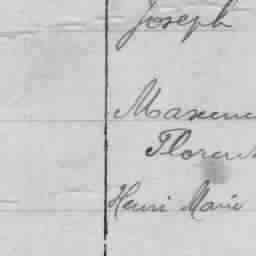 Joseph
Maxenc
Floren
Henri Marie